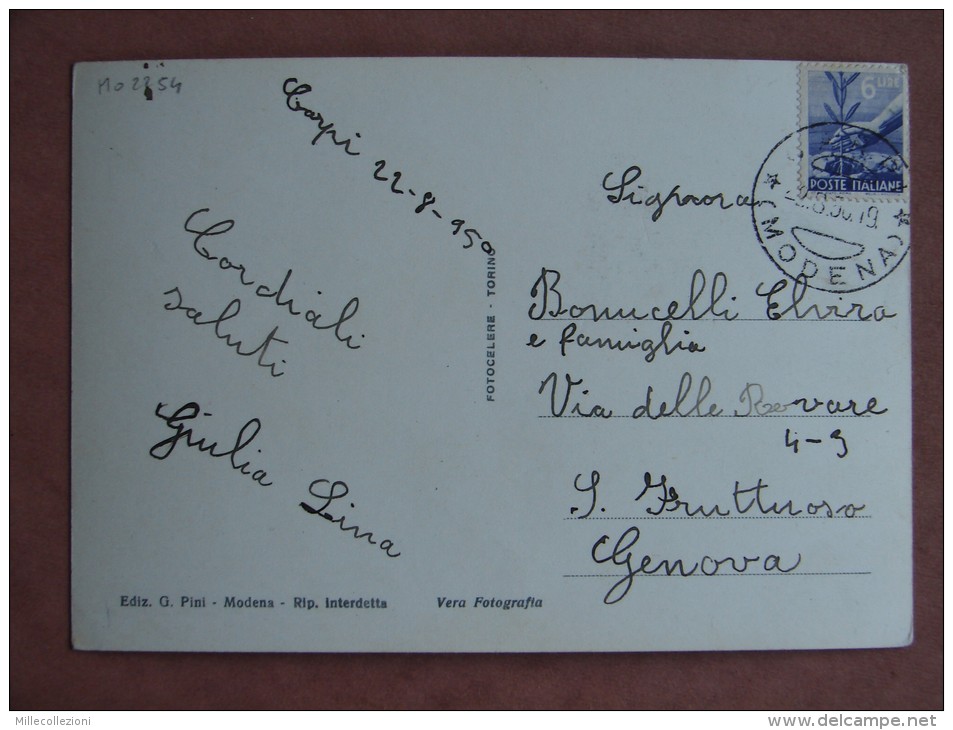 MO 2254
Carpi 22-8-950
Cordiali
saluti
Giulia Lina
Ediz. G. Pini - Modena - Rip. Interdetta
Vera Fotografia
FOTOCELERE - TORINO
6 LIRE
POSTE ITALIANE
(MODENA)
Signora
Bonucelli Elvira
e famiglia
Via delle Rovare
4-9
S. Fruttuoso
Genova
Millecollezioni
http://www.delcampe.net